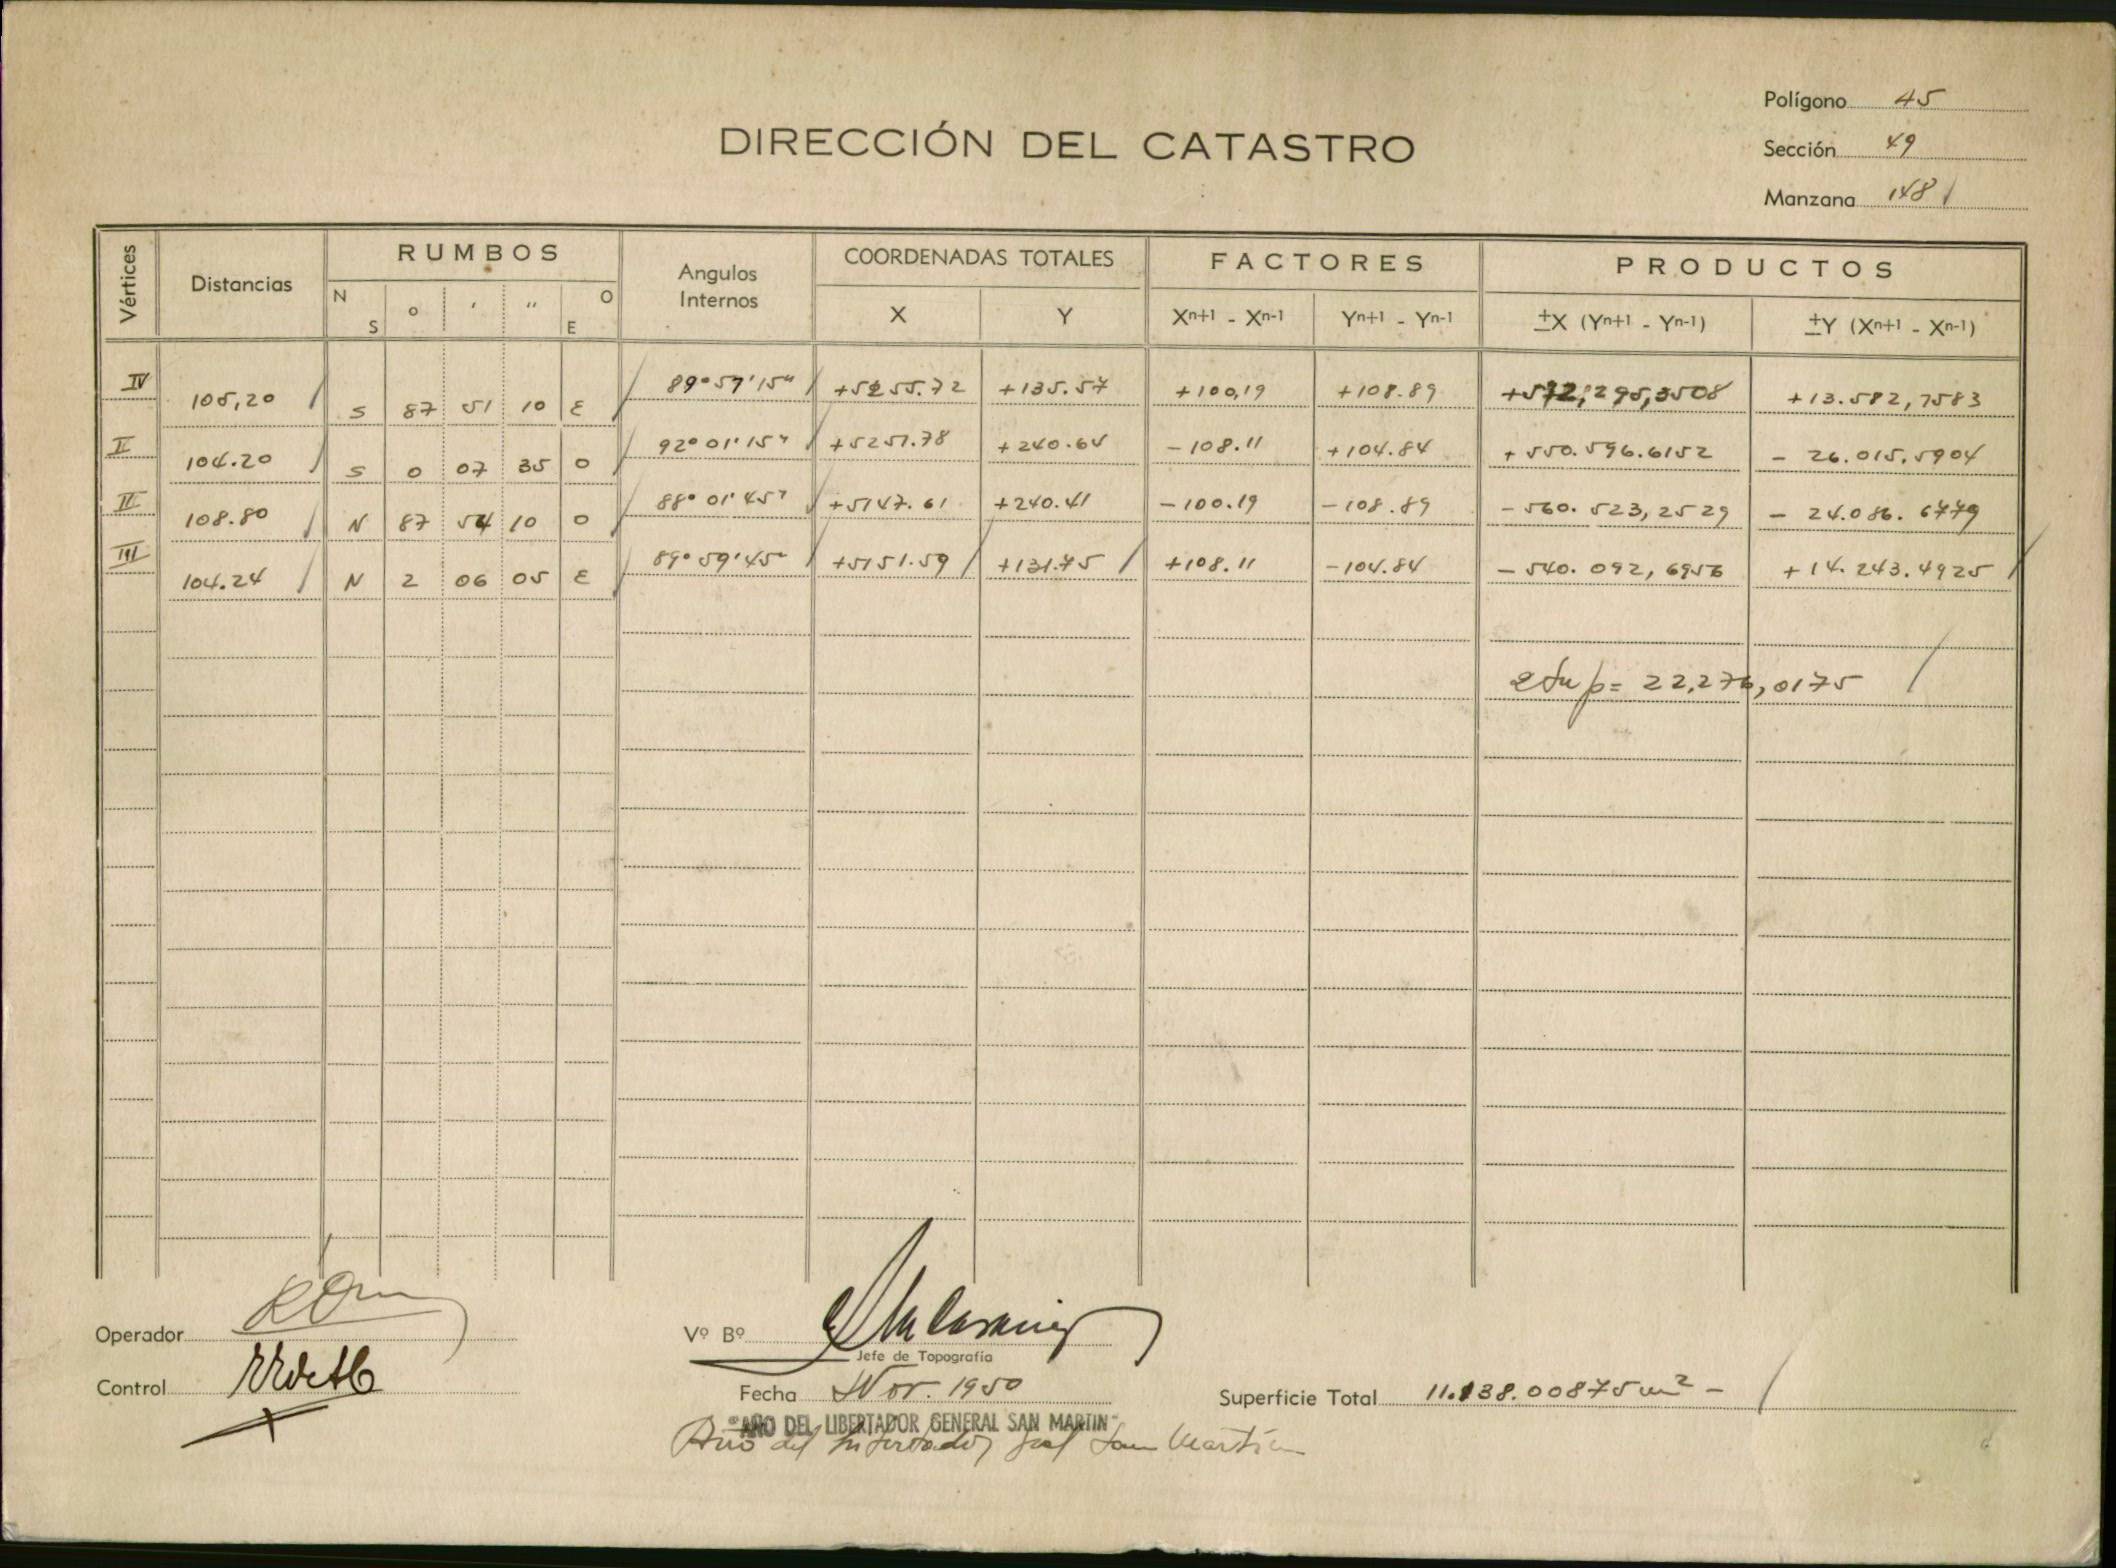 Polígono 45
DIRECCIÓN DEL CATASTRO
Sección 49
Manzana 148
Vértices Distancias RUMBOS Angulos Internos COORDENADAS TOTALES FACTORES PRODUCTOS
N S o ' " O E X Y Xn+1 - Xn-1 Yn+1 - Yn-1 ±X (Yn+1 - Yn-1) ±Y (Xn+1 - Xn-1)
IV 105,20 S 87 51 10 E 89°57'15" +5255.72 +135.57 +100,19 +108.89 +572,295,3508 +13.582,7583
II 104.20 S 0 07 35 O 92°01'15" +5251.78 +240.64 -108.11 +104.84 +550.596.6152 - 26.015.5904
II 108.80 N 87 54 10 O 88°01'45" +5147.61 +240.41 -100.19 -108.89 -560.523,2529 - 24.086.6779
III 104.24 N 2 06 05 E 89°59'45" +5151.59 +131.75 +108.11 -104.84 -540.092,6956 +14.243.4925
2 Sup = 22,276,0175
Operador
Vº Bº
Jefe de Topografía
Control
Fecha Nov. 1950
Superficie Total 11.138.00875 m² -
"AÑO DEL LIBERTADOR GENERAL SAN MARTIN"
Año del Libertador Gral San Martin